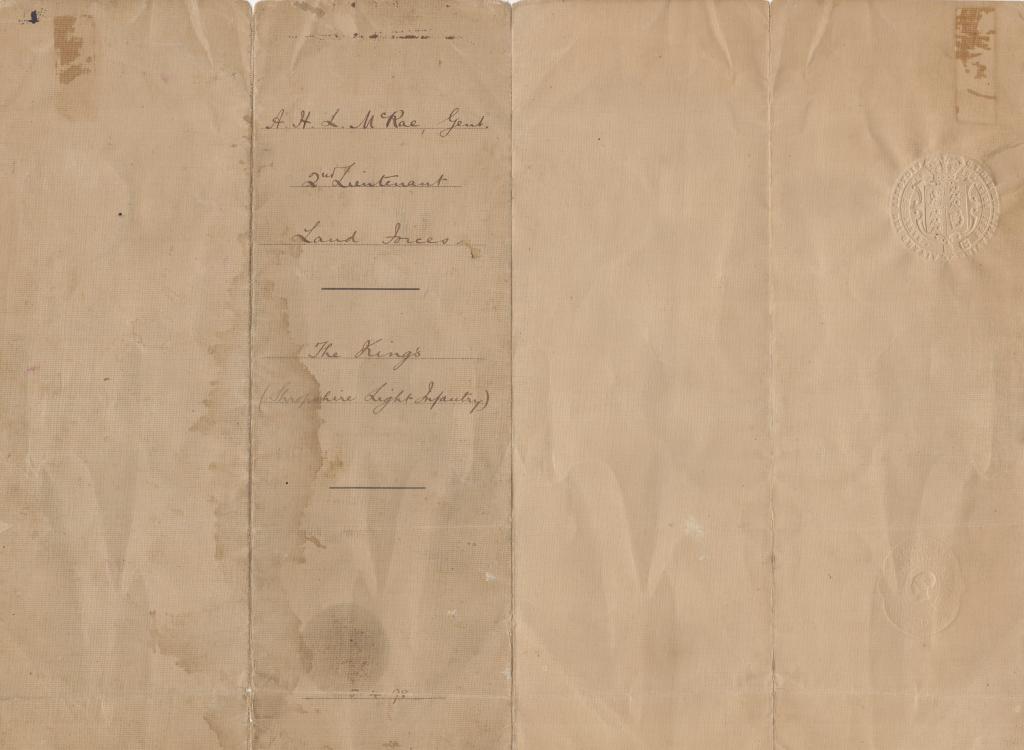 A. H. L. McRae, Gent.
2nd Lieutenant
Land Forces
The King's
(Shropshire Light Infantry)